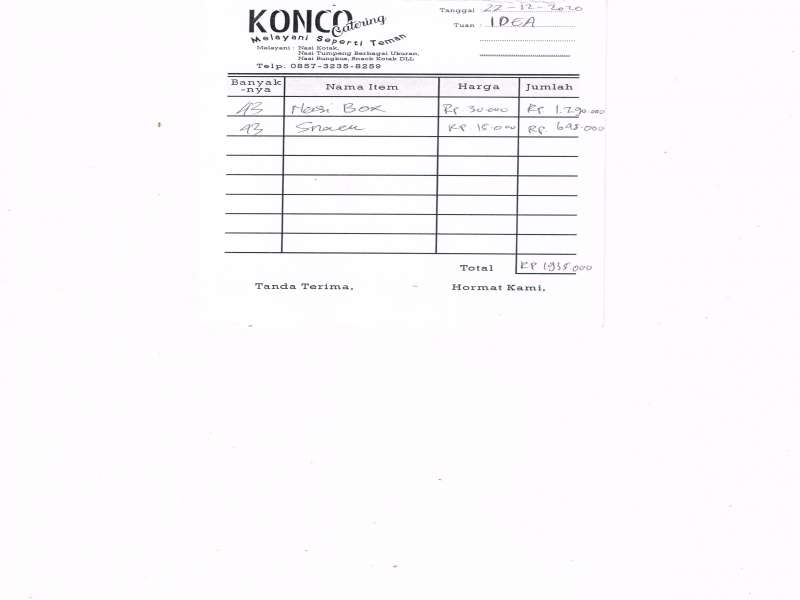 KONCO Catering
Melayani Seperti Teman
Melayani : Nasi Kotak,
Nasi Tumpang Berbagai Ukuran,
Nasi Bungkus, Snack Kotak DLL
Telp. 0857-3235-8259
Tanggal 22-12-2020
Tuan : IDEA
Banyak-nya Nama Item Harga Jumlah
43 Nasi Box Rp 30.000 Rp 1.290.000
43 Snack Rp 15.000 Rp. 645.000
Total Rp 1.935.000
Tanda Terima, Hormat Kami,